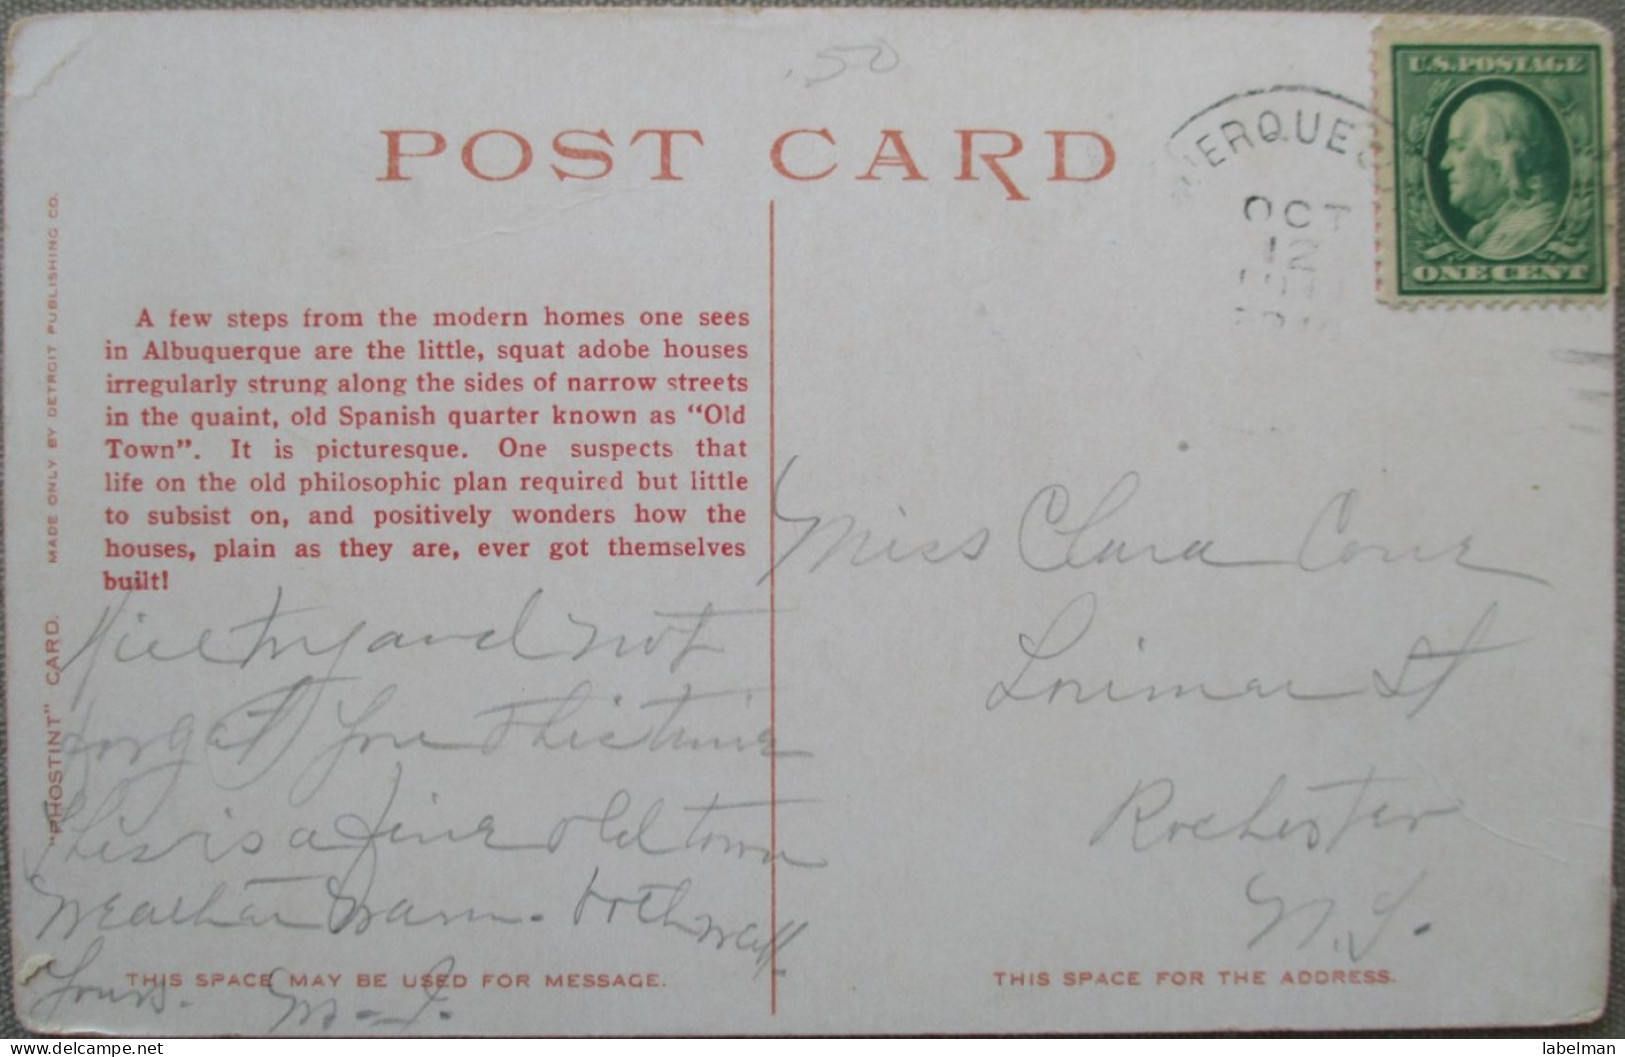 .50
POST CARD
ERQUE
OCT
12
U.S. POSTAGE
ONE CENT
MADE ONLY BY DETROIT PUBLISHING CO.
"PHOSTINT" CARD.
A few steps from the modern homes one sees
in Albuquerque are the little, squat adobe houses
irregularly strung along the sides of narrow streets
in the quaint, old Spanish quarter known as "Old
Town". It is picturesque. One suspects that
life on the old philosophic plan required but little
to subsist on, and positively wonders how the
houses, plain as they are, ever got themselves
built!
Will try and not
forget you this time
This is a fine old town
Weather Warm. both well
Yours. M.
THIS SPACE MAY BE USED FOR MESSAGE.
Miss Clara
Lorimar St
Rochester
N.Y.
THIS SPACE FOR THE ADDRESS.
delcampe.net
labelman